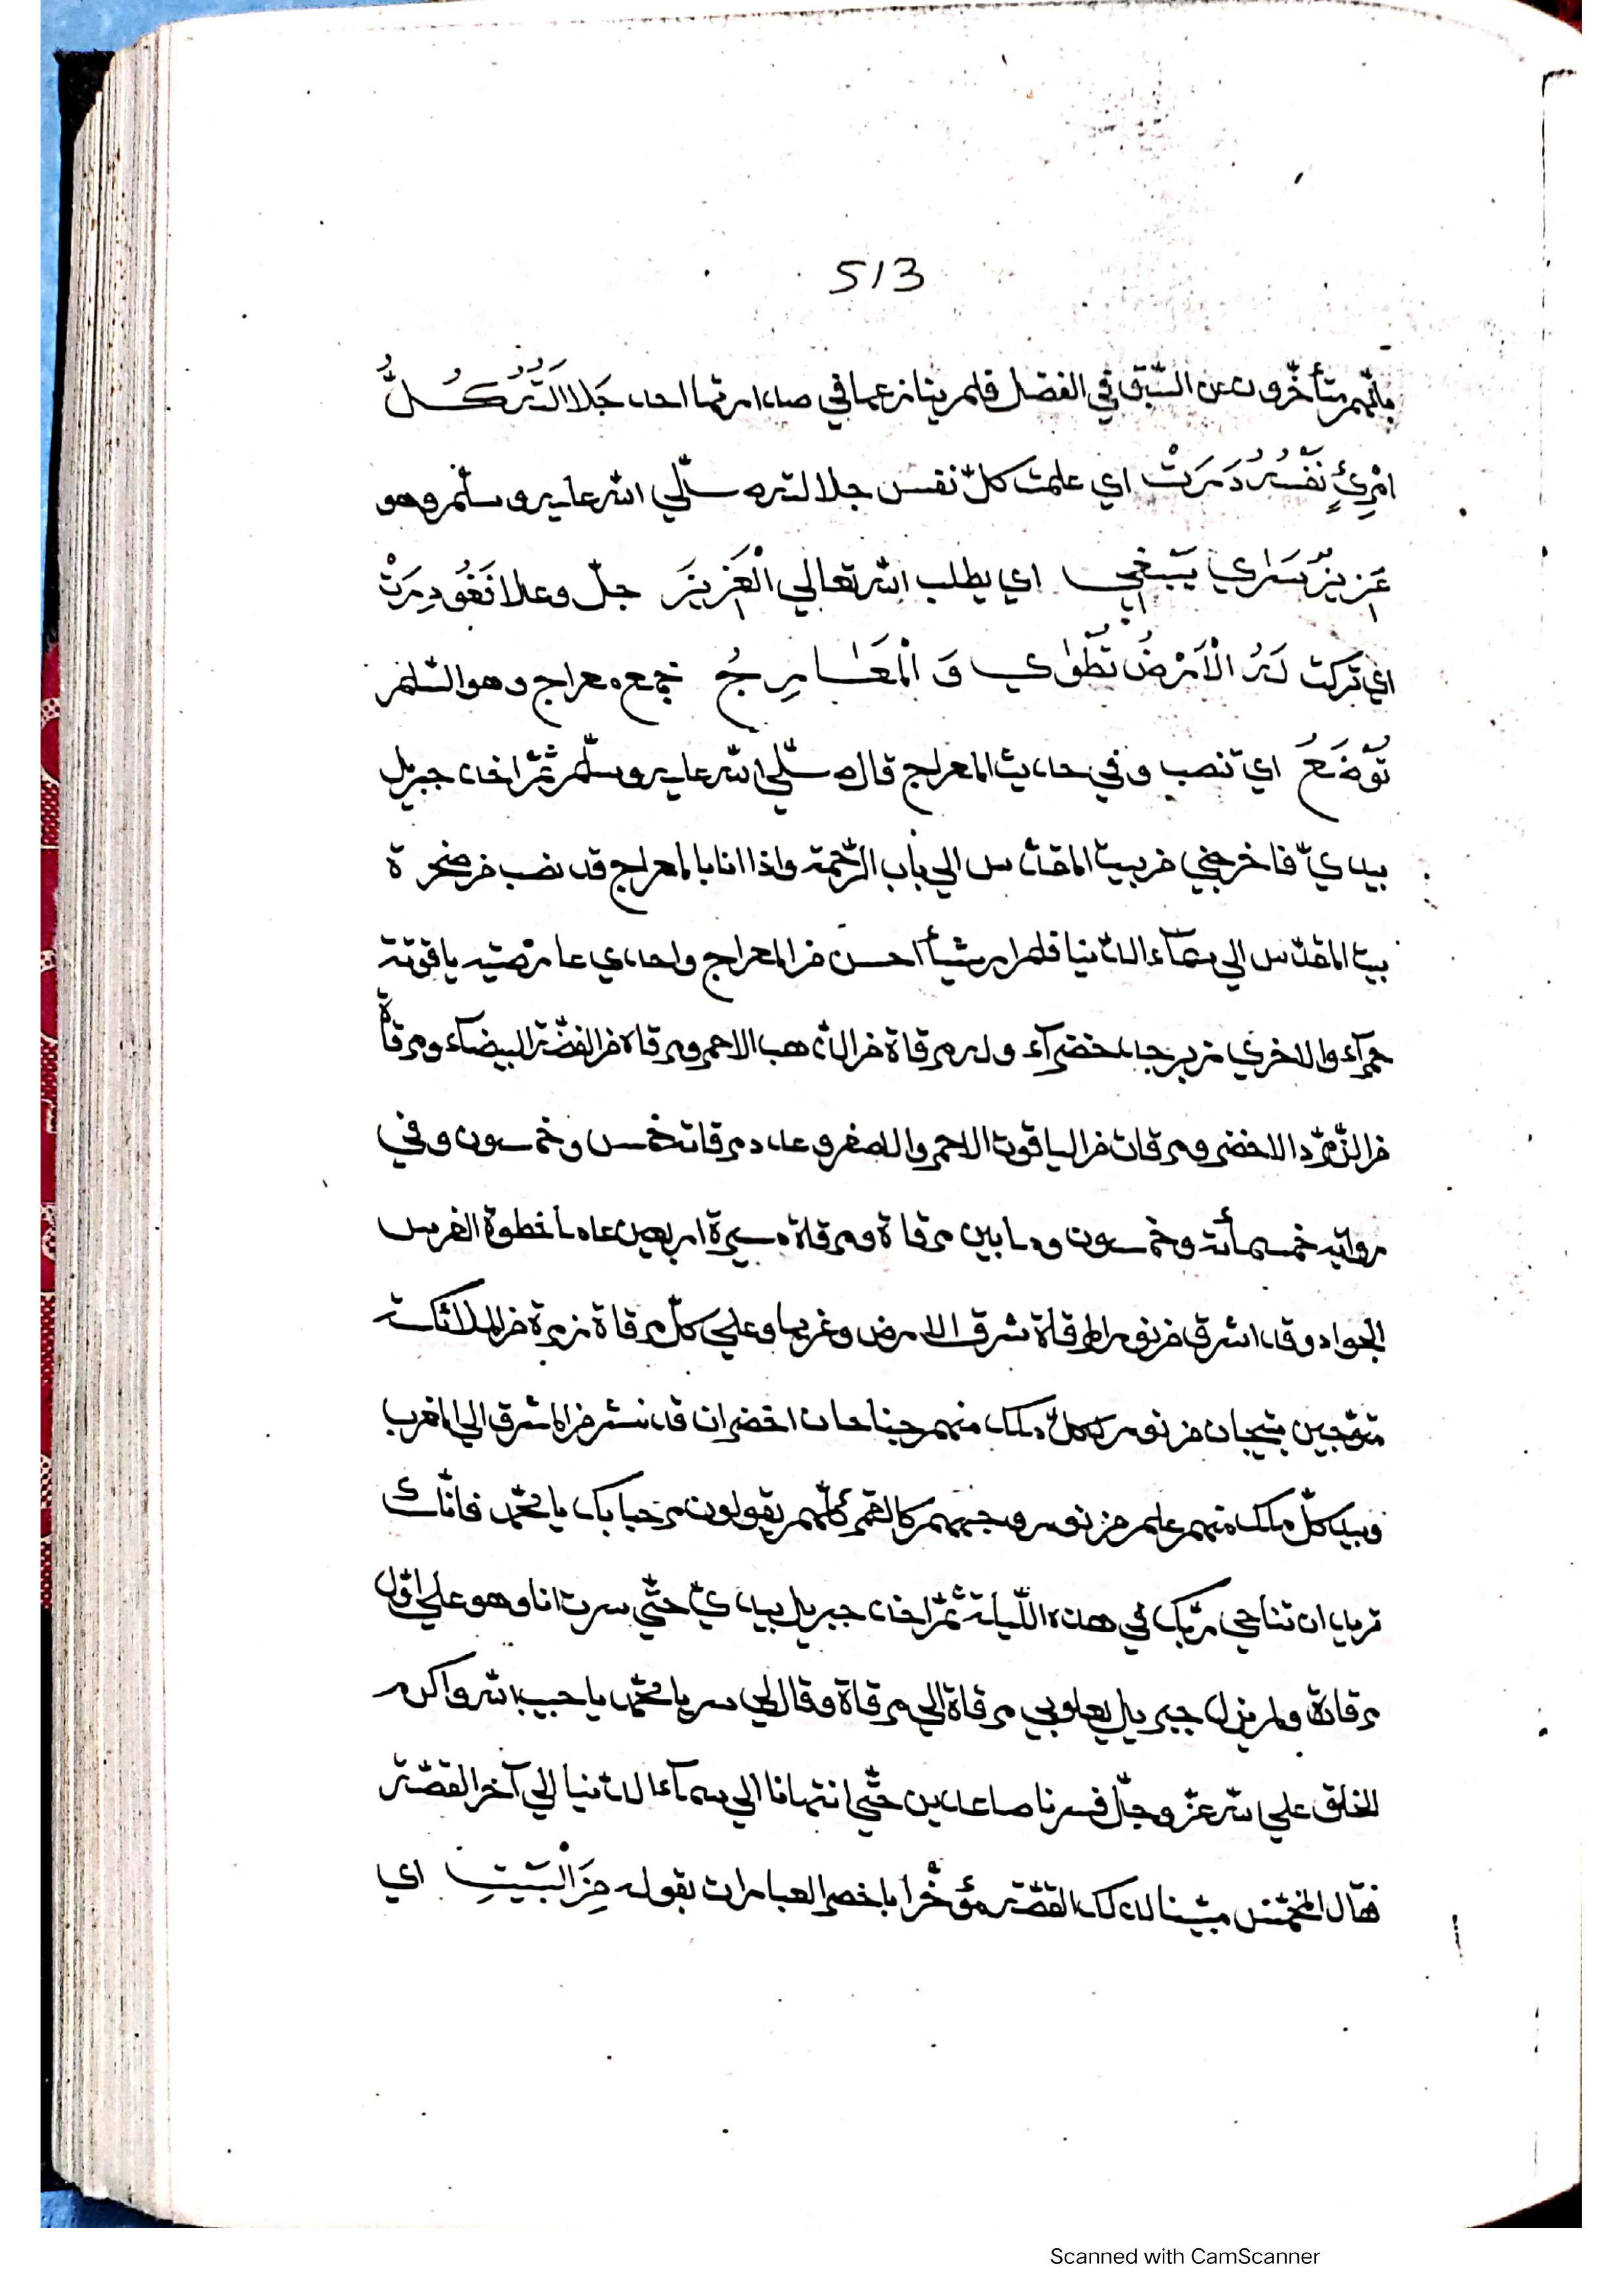 513
بانّهم متأخّرون عن السّبق في الفضل فلم ينازعهما في صدارتها احد جَلَالَتَهُ كُلُّ
امْرِئٍ نَفْسُهُ دَرَتْ اي علمت كلّ نفس جلالته صلّي الله عليه وسلّم وهو
عَزِيزٌ سَرٰي يَبْغِي اي يطلب الله تعالي الْعَزِيزَ جلّ وعلا فَغُودِرَتْ
اي تركت لَهُ الْاَرْضُ تُطْوٰي وَ الْمَعَارِجُ جمع معراج وهو السّلّم
تُوضَعُ اي تنصب وفي حديث المعراج قال صلّي الله عليه وسلّم ثمّ اخذ جبريل
بيديّ فاخرجني من بيت المقدّس الي باب الرّحمة واذا انا بالمعراج قد نصب من صخرة
بيت المقدّس الي سمآء الدّنيا فلم ار شيأ احسن من المعراج واحدي عارضتيه ياقوتة
حمرآء والاخري زبرجد خضرآء وله مرقاة من الذّهب الاحمر ومرقاة من الفضّة البيضآء ومرقاة
من الزّمرّد الاخضر ومرقات من الياقوت الاحمر والاصفر وعدد مرقاته خمس وخمسون وفي
رواية خمسمأئة وخمسون وما بين مرقاة ومرقاة مسيرة اربعين عاما خطوة الفرس
الجواد وقد اشرق من نور المرقاة شرق الارض وغربها وعلي كلّ مرقاة زمرة من الملائكة
متوّجين بتيجان من نور لكلّ ملك منهم جناحان اخضران قد نشر من المشرق الي المغرب
وبيد كلّ ملك منهم علم من نور وجههم كالقمر كلّهم يقولون مرحبا بك يا محمّد فانّك
تريد ان تناجي ربّك في هذه اللّيلة ثمّ اخذ جبريل بيديّ حتّي سرت انا وهو علي اوّل
مرقاة ولم يزل جبريل يعلو بي مرقاة الي مرقاة وقال لي سر يا محمّد يا حبيب الله واكرم
الخلق علي الله عزّ وجلّ فسرنا صاعدين حتّي انتهانا الي سمآء الدّنيا الي آخر القصّة
فقال المخمّس مبيّنا لذلك القصّة مؤخّرا باخصر العبارات بقوله مِنَ الْبَيْتِ اي
Scanned with CamScanner